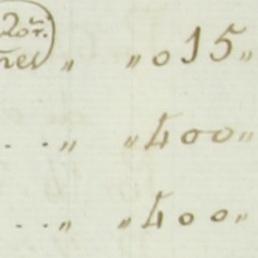 20 r.
nes „ „ 0 15 „
. . „ „ 400 „
. . „ „ 400 „